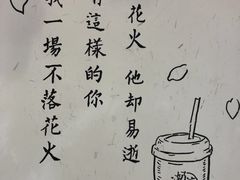 花火 他却易逝
有這樣的你
一場不落花火